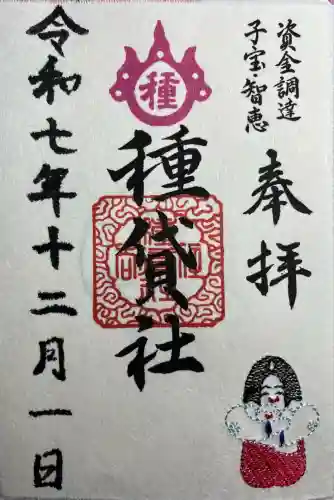 資金調達
子宝・智恵
奉拝
種
種貸社
令和七年十二月一日